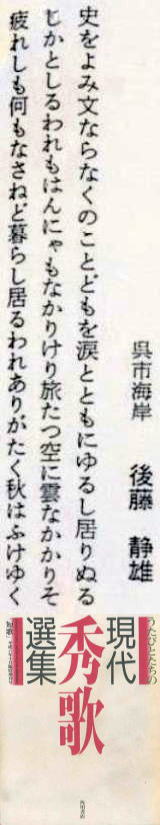 呉市海岸　後藤　静雄
史をよみ文ならなくのことどもを涙とともにゆるし居りぬる
しかとしるわれもはんにゃもなかりけり旅たつ空に雲なかかりそ
疲れしも何もなさねど暮らし居るわれありがたく秋はふけゆく
うたびとたちの
現代
秀歌
選集
短歌
角川書店